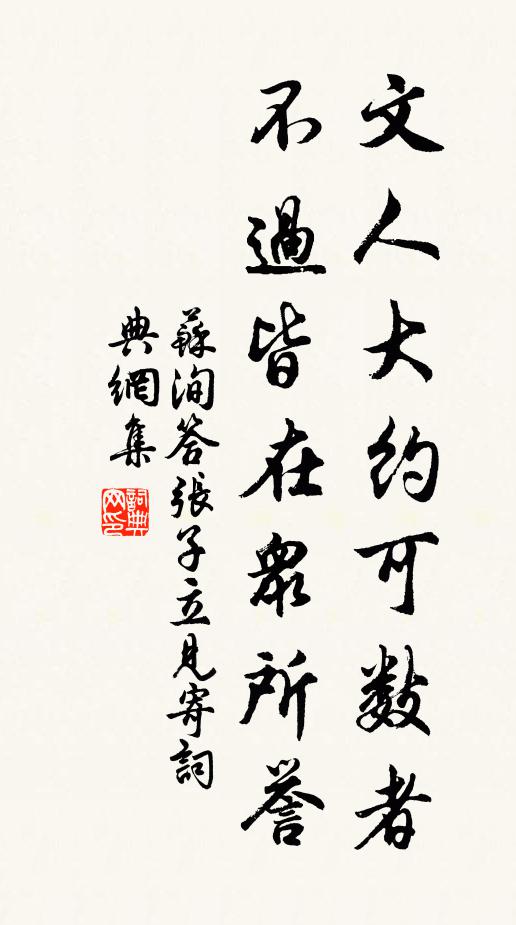 文人大約可數者
不過皆在眾所譽
蘇洵答張子立見寄詞
典網集
詞典网印